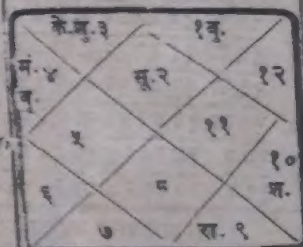 के.शु. ३ १ बु.
मं. ४ सू. २ १२
बृ.
५ ११
१०
६ ८ श.
७ रा. ९